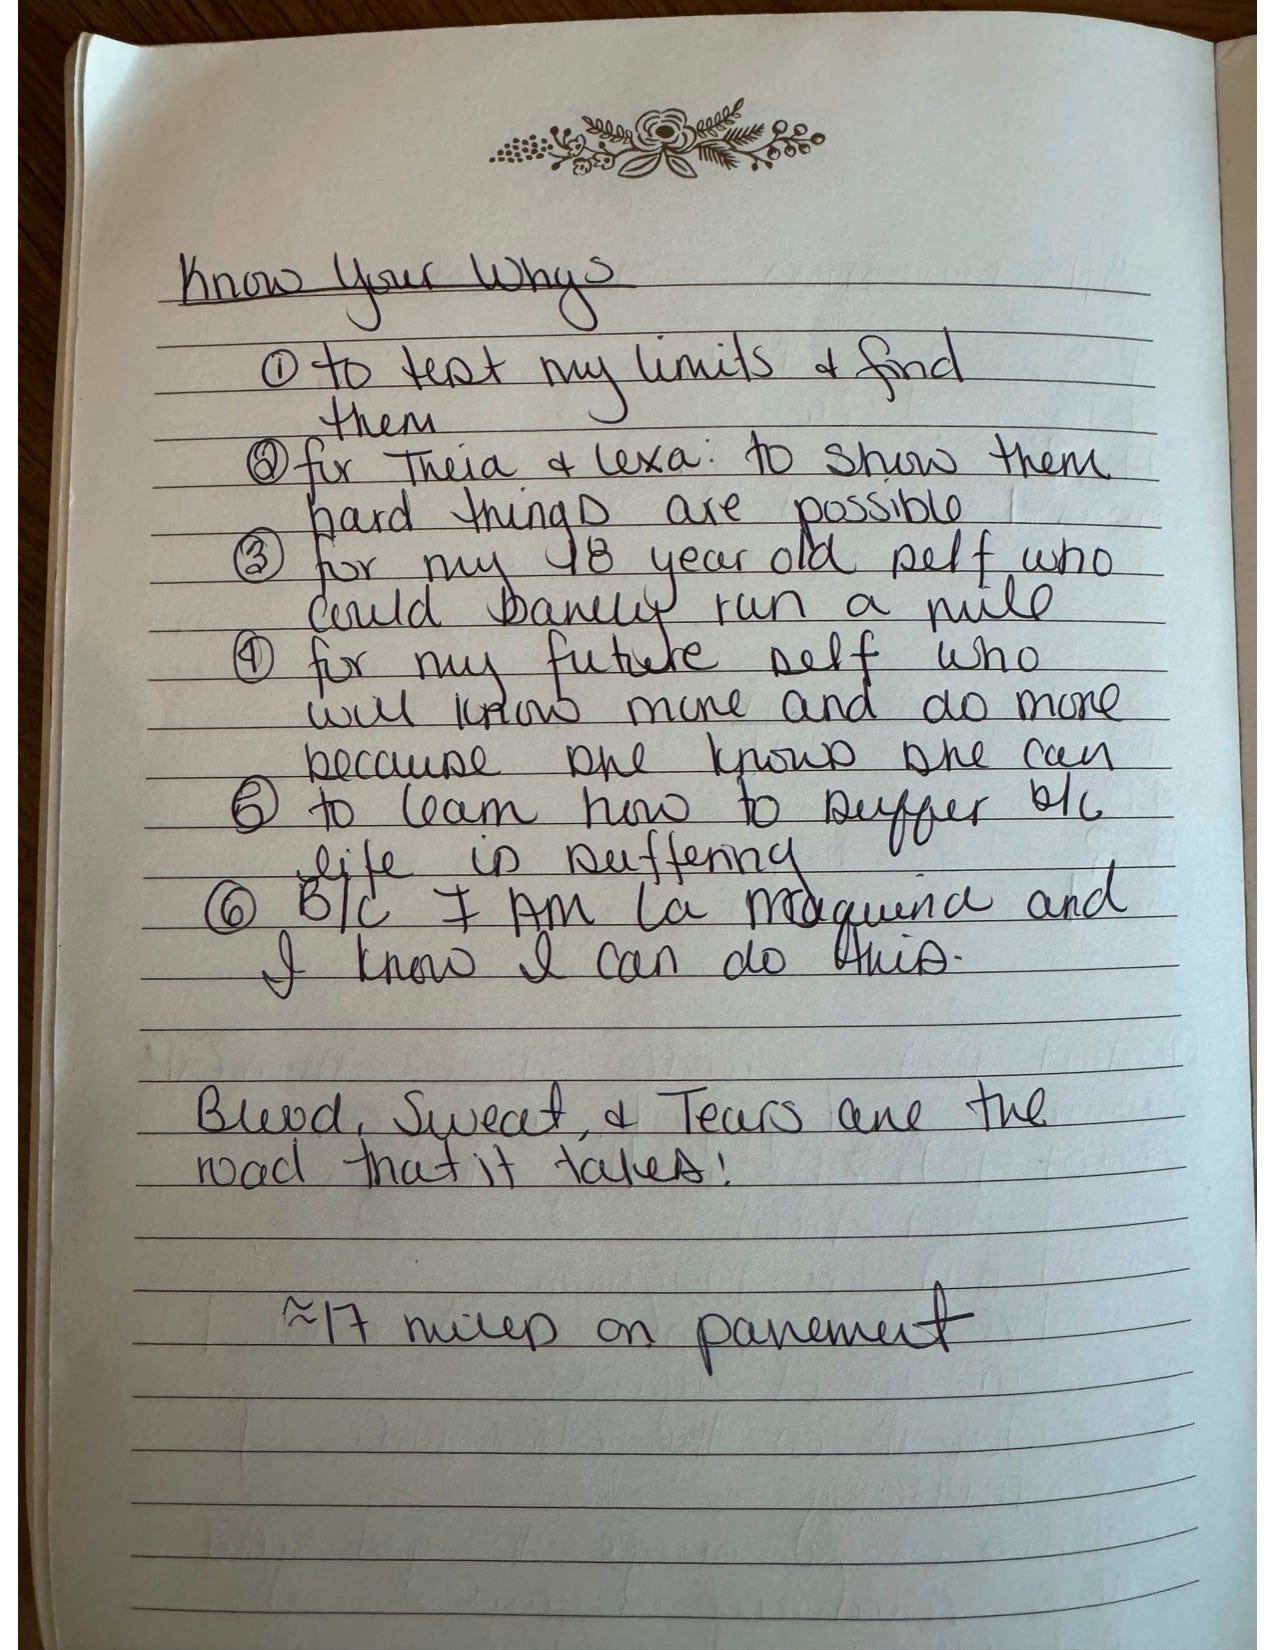 Know Your Whys
① to test my limits & find
them
② for Theia & Lexa: to show them
hard things are possible
③ for my 18 year old self who
could barely run a mile
④ for my future self who
will know more and do more
because she knows she can
⑤ to learn how to suffer b/c
life is suffering
⑥ B/C I AM La Maquina and
I know I can do this.
Blood, Sweat, & Tears are the
road that it takes!
≈17 miles on pavement